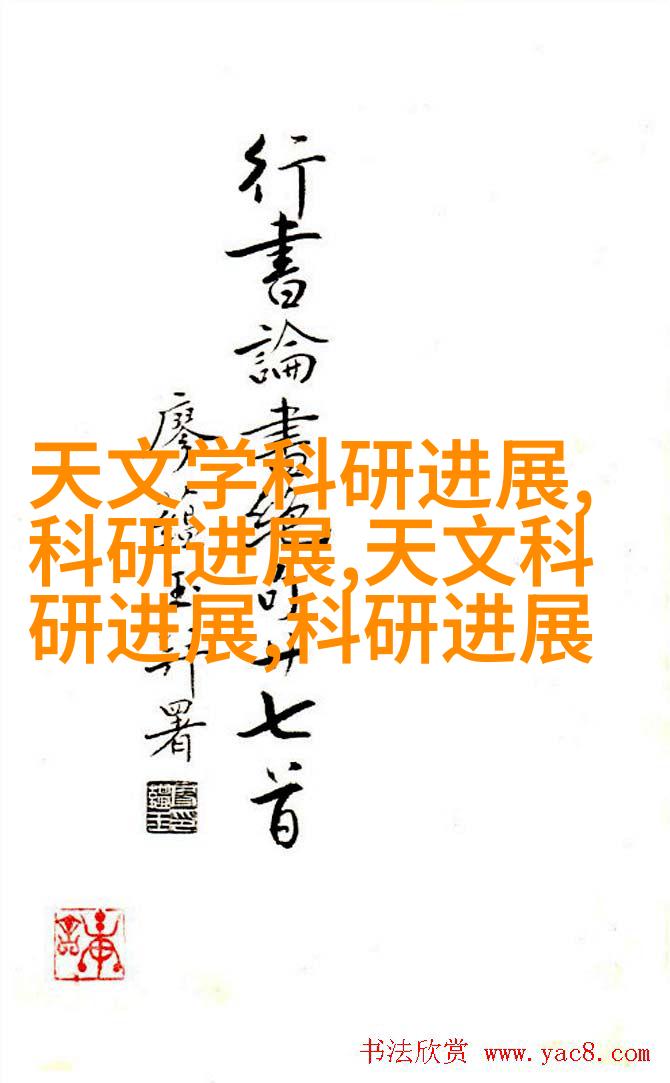 行書論書絕句廿七首
廖蘊玉許署
天文学科研进展,
科研进展,天文科
研进展,科研进展
书法欣赏 www.yac8.com